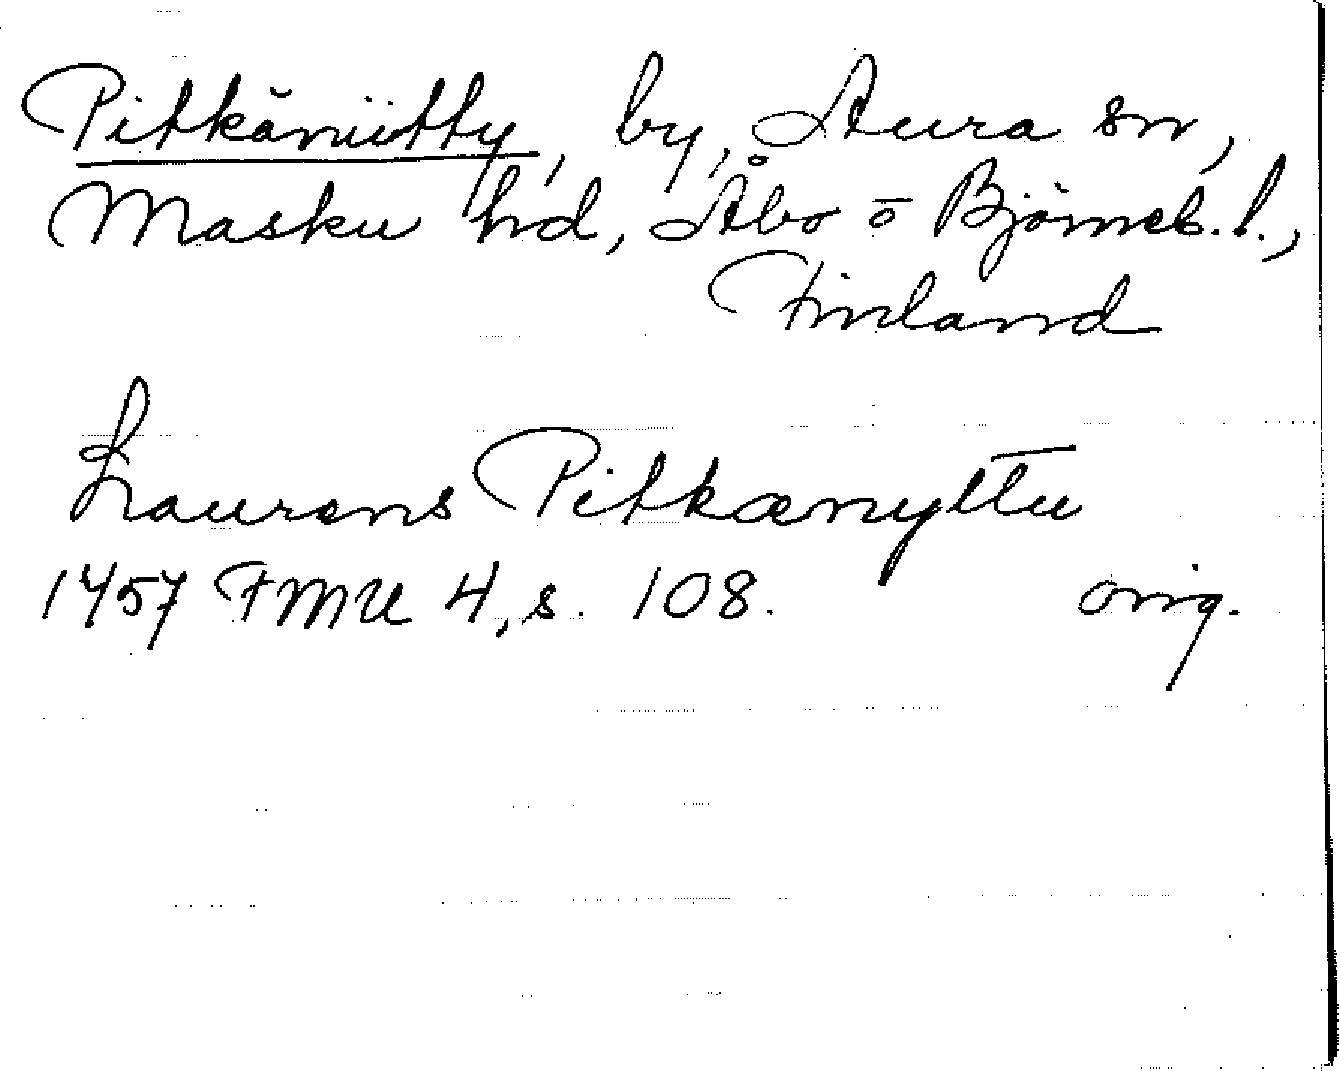 Pitkäniitty, by, Aura sn,
Masku hd, Åbo o Björneb. l.,
Finland
Laurens Pitkænyttu
1457 FMU 4, s. 108. orig.